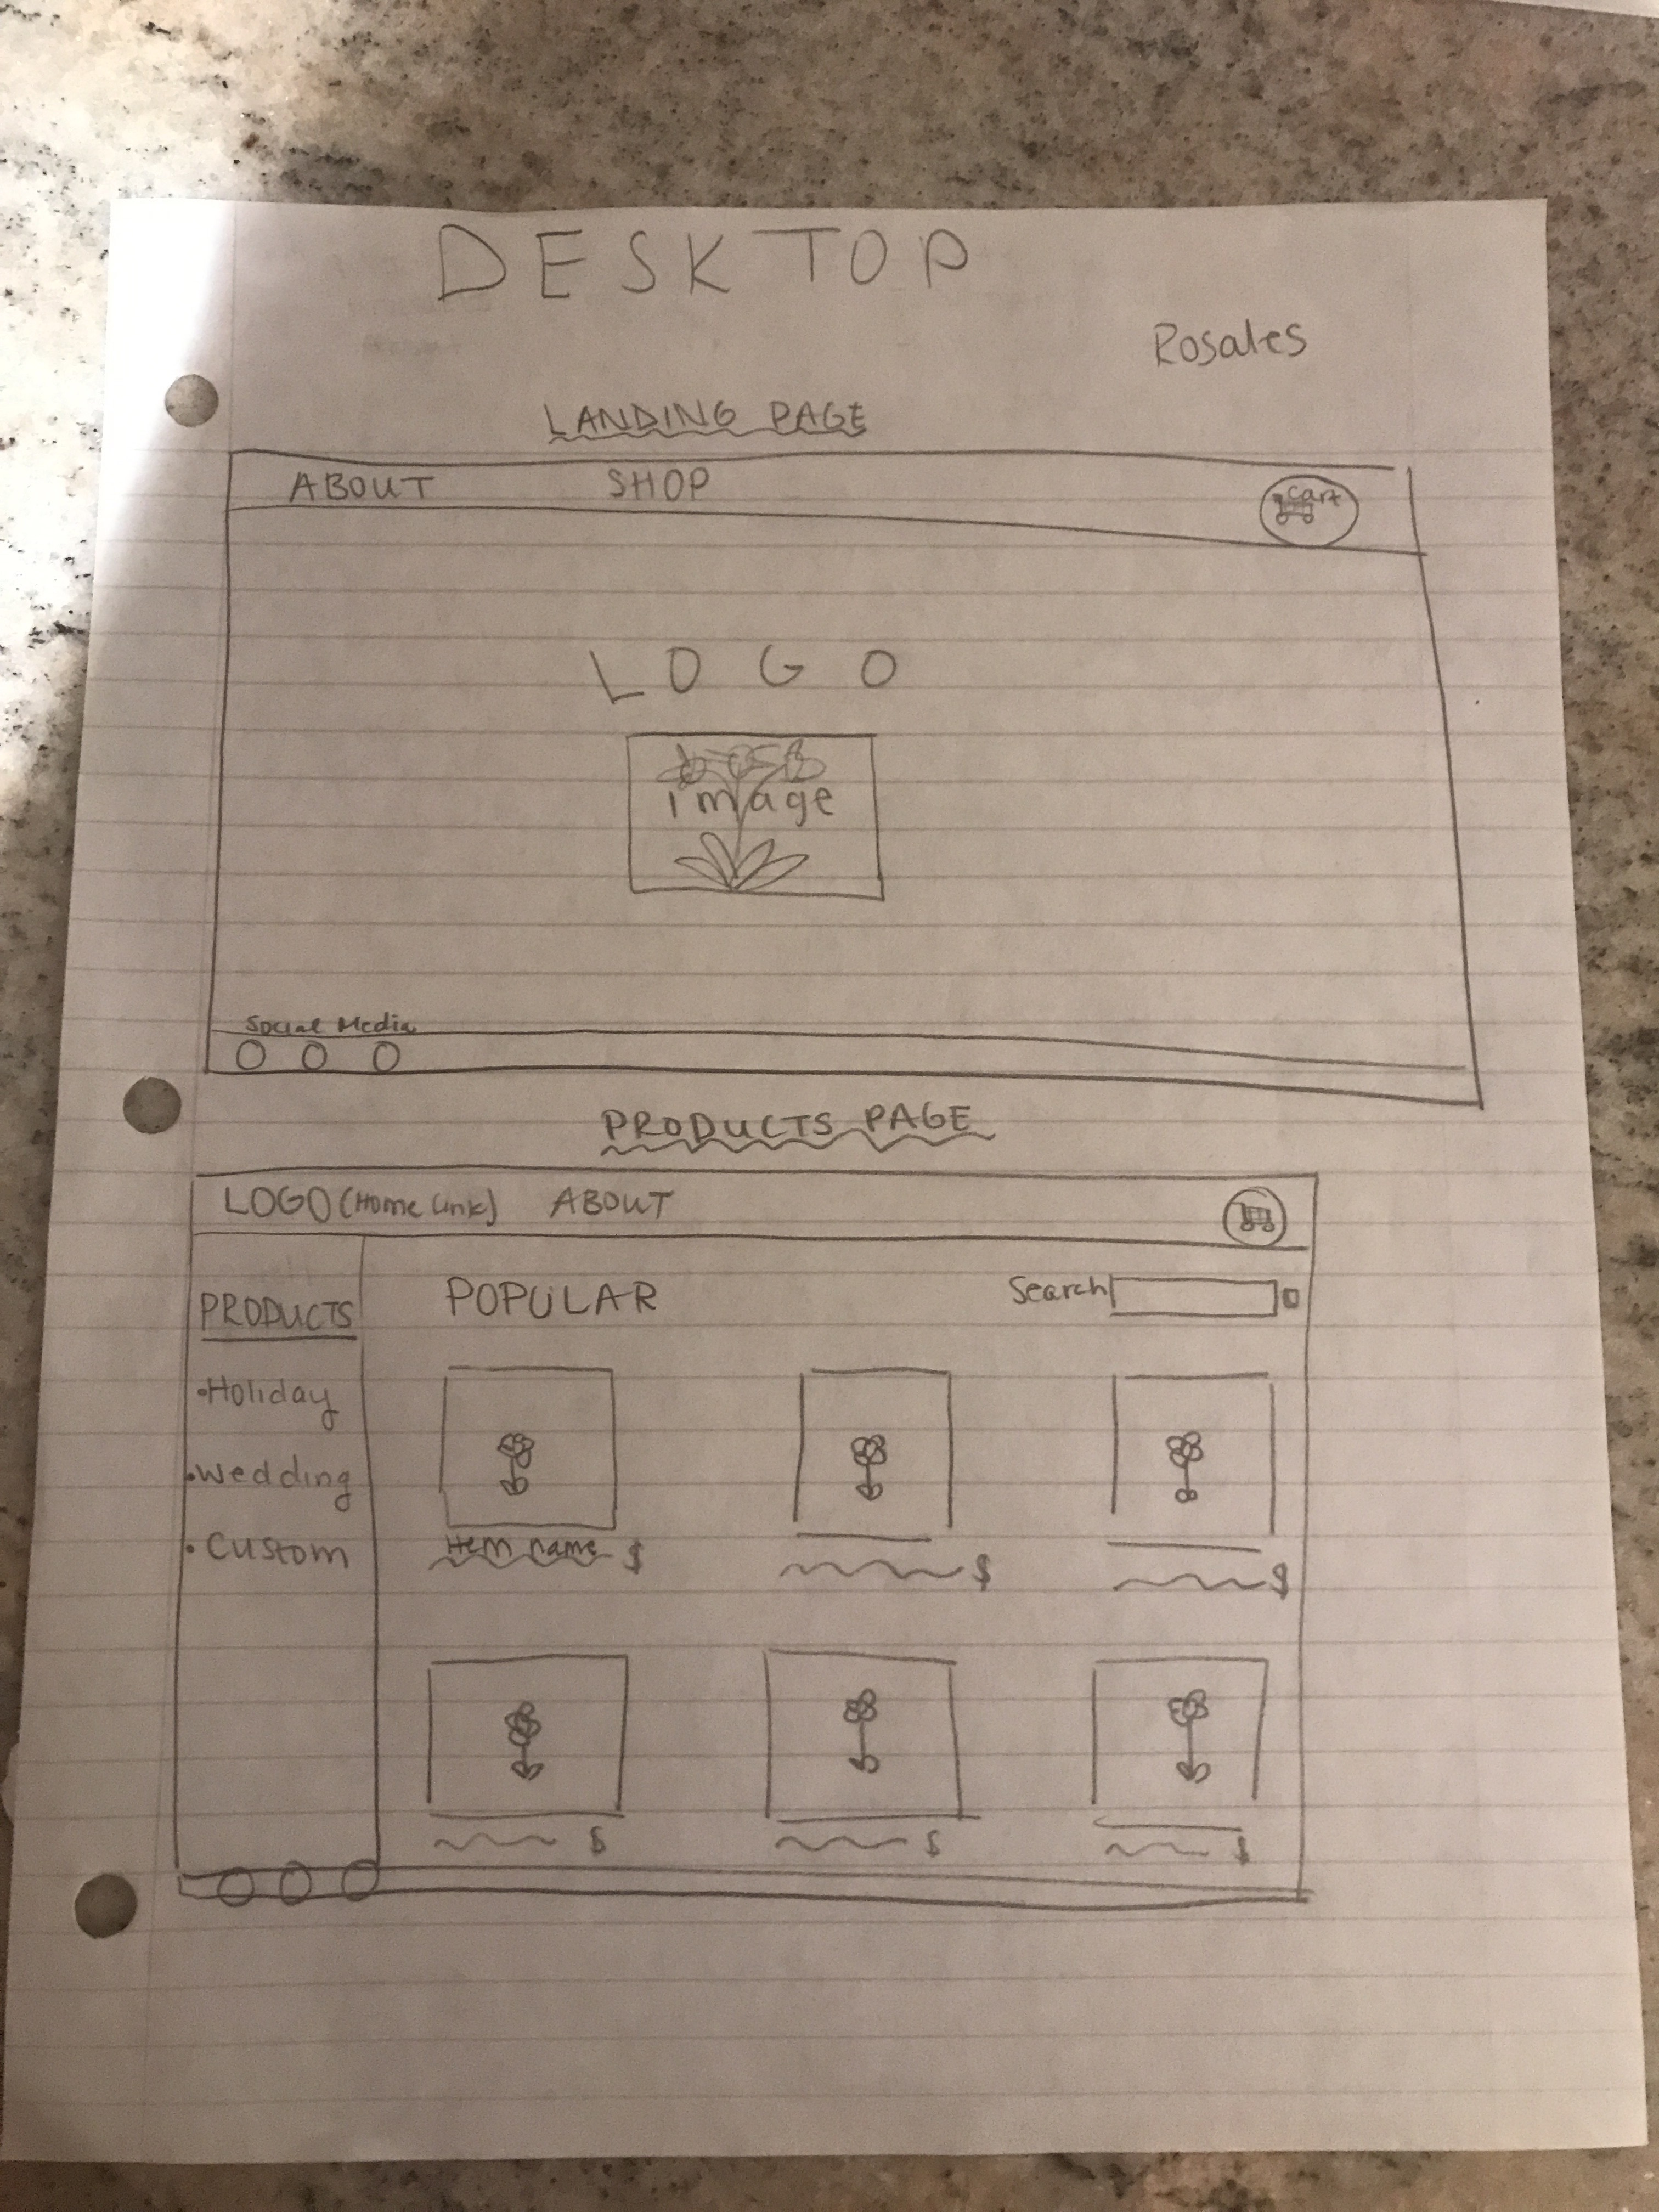 DESKTOP
Rosales
LANDING PAGE
ABOUT SHOP cart
LOGO
image
Social Media
PRODUCTS PAGE
LOGO (Home Link) ABOUT
PRODUCTS POPULAR Search
•Holiday
•Wedding
•Custom
Item name $ $ $
$ $ $